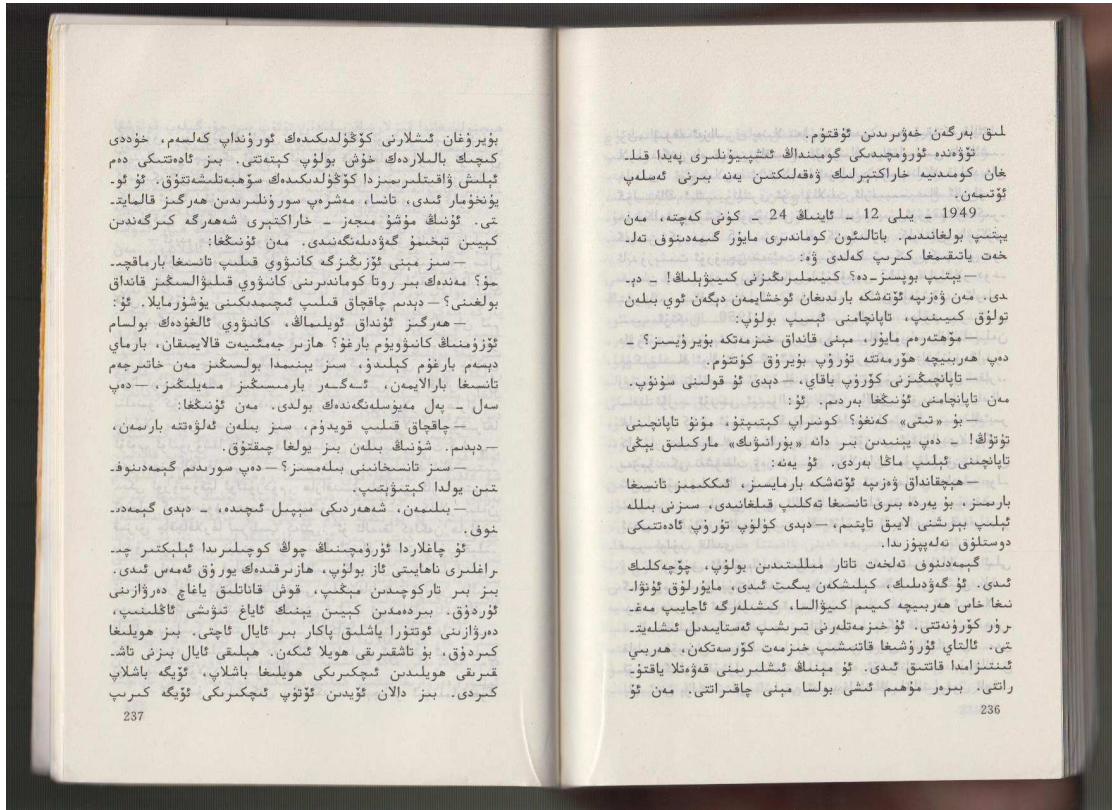 لىق بەرگەن خەۋىرىدىن ئۇقتۇم.
تۆۋەندە ئۈرۈمچىدىكى گومىنداڭ ئىشپىيۇنلىرى پەيدا قىلـ
غان كومىدىيە خاراكتېرلىك ۋەقەلىكتىن يەنە بىرنى ئەسلەپ
ئۆتىمەن.
1949 ـ يىلى 12 ـ ئاينىڭ 24 ـ كۈنى كەچتە، مەن
يېتىپ بولغانىدىم. باتالىئون كوماندىرى مايور گىمەدىنوف تەلـ
خەت ياتىقىمغا كىرىپ كەلدى ۋە:
— يېتىپ بوپسىز ـ دە؟ كىيىملىرىڭىزنى كىيىۋېلىڭ! ـ دېـ
دى. مەن ۋەزىپە ئۆتەشكە بارىدىغان ئوخشايمەن دېگەن ئوي بىلەن
تولۇق كىيىنىپ، تاپانچامنى ئېسىپ بولۇپ:
— مۆھتەرەم مايور، مېنى قانداق خىزمەتكە بۇيرۇيسىز؟ ـ
دەپ ھەربىيچە ھۆرمەتتە تۇرۇپ بۇيرۇق كۈتتۈم.
— تاپانچىڭىزنى كۆرۈپ باقاي، — دېدى ئۇ قولىنى سۇنۇپ.
مەن تاپانچامنى ئۇنىڭغا بەردىم. ئۇ:
— بۇ «تىتى» كەنغۇ؟ كونىراپ كېتىپتۇ، مۇنۇ تاپانچىنى
تۇتۇڭ! ـ دەپ يېنىدىن بىر دانە «بۇرانىۋىك» ماركىلىق يېڭى
تاپانچىنى ئېلىپ ماڭا بەردى. ئۇ يەنە:
— ھېچقانداق ۋەزىپە ئۆتەشكە بارمايسىز، ئىككىمىز تانسىغا
بارىمىز، بۇ يەردە بىرى تانسىغا تەكلىپ قىلغانىدى، سىزنى بىللە
ئېلىپ بېرىشنى لايىق تاپتىم، — دېدى كۈلۈپ تۇرۇپ ئادەتتىكى
دوستلۇق تەلەپپۇزىدا.
گىمەدىنوف تەلخەت تاتار مىللىتىدىن بولۇپ، چۆچەكلىك
ئىدى. ئۇ گەۋدىلىك، كېلىشكەن يىگىت ئىدى، مايورلۇق ئۇنۋاـ
نىغا خاس ھەربىيچە كىيىم كىيىۋالسا، كىشىلەرگە ئاجايىپ مەغـ
رۇر كۆرۈنەتتى. ئۇ خىزمەتلەرنى تىرىشىپ ئەستايىدىل ئىشلەيتـ
تى. ئالتاي ئۇرۇشىغا قاتنىشىپ خىزمەت كۆرسەتكەن، ھەربىي
ئىنتىزامدا قاتتىق ئىدى. ئۇ مېنىڭ ئىشلىرىمنى قەۋەتلا ياقتۇـ
راتتى. بىرەر مۇھىم ئىشى بولسا مېنى چاقىراتتى. مەن ئۇ
236
بۇيرۇغان ئىشلارنى كۆڭۈلدىكىدەك ئورۇنداپ كەلسەم، خۇددى
كىچىك بالىلاردەك خۇش بولۇپ كېتەتتى. بىز ئادەتتىكى دەم
ئېلىش ۋاقىتلىرىمىزدا كۆڭۈلدىكىدەك سۆھبەتلىشەتتۇق. ئۇ ئوـ
يۇنخۇمار ئىدى، تانسا، مەشرەپ سورۇنلىرىدىن ھەرگىز قالمايتـ
تى. ئۇنىڭ مۇشۇ مىجەز ـ خاراكتېرى شەھەرگە كىرگەندىن
كېيىن تېخىمۇ گەۋدىلەنگەنىدى. مەن ئۇنىڭغا:
— سىز مېنى ئۆزىڭىزگە كانىۋوي قىلىپ تانسىغا بارماقچىـ
مۇ؟ مەندەك بىر روتا كوماندىرىنى كانىۋوي قىلىۋالسىڭىز قانداق
بولغىنى؟ — دېدىم چاقچاق قىلىپ ئىچىمدىكىنى يوشۇرمايلا. ئۇ:
— ھەرگىز ئۇنداق ئويلىماڭ، كانىۋوي ئالغۇدەك بولسام
ئۆزۈمنىڭ كانىۋويۇم بارغۇ؟ ھازىر جەمئىيەت قالايمىقان، بارماي
دېسەم بارغۇم كېلىدۇ، سىز يېنىمدا بولسىڭىز مەن خاتىرجەم
تانسىغا بارالايمەن، ئەگەر بارمىسىڭىز مەيلىڭىز، — دەپ
سەل ـ پەل مەيۈسلەنگەندەك بولدى. مەن ئۇنىڭغا:
— چاقچاق قىلىپ قويدۇم، سىز بىلەن ئەلۋەتتە بارىمەن،
— دېدىم. شۇنىڭ بىلەن بىز يولغا چىقتۇق.
— سىز تانسىخانىنى بىلەمسىز؟ — دەپ سورىدىم گىمەدىنوفـ
تىن يولدا كېتىۋېتىپ.
— بىلىمەن، شەھەردىكى سېپىل ئىچىدە، ـ دېدى گىمەدىـ
نوف.
ئۇ چاغلاردا ئۈرۈمچىنىڭ چوڭ كوچىلىرىدا ئېلېكتىر چىـ
راغلىرى ناھايىتى ئاز بولۇپ، ھازىرقىدەك يورۇق ئەمەس ئىدى.
بىز بىر تاركوچىدىن مېڭىپ، قوش قاناتلىق ياغاچ دەرۋازىنى
ئۇردۇق. بىردەمدىن كېيىن يېنىك ئاياغ تىۋىشى ئاڭلىنىپ،
دەرۋازىنى ئوتتۇرا ياشلىق پاكار بىر ئايال ئاچتى. بىز ھويلىغا
كىردۇق، بۇ تاشقىرىقى ھويلا ئىكەن. ھېلىقى ئايال بىزنى تاشـ
قىرىقى ھويلىدىن ئىچكىرىكى ھويلىغا باشلاپ، ئۆيگە باشلاپ
كىردى. بىز دالان ئۆيدىن ئۆتۈپ ئىچكىرىكى ئۆيگە كىرىپ
237